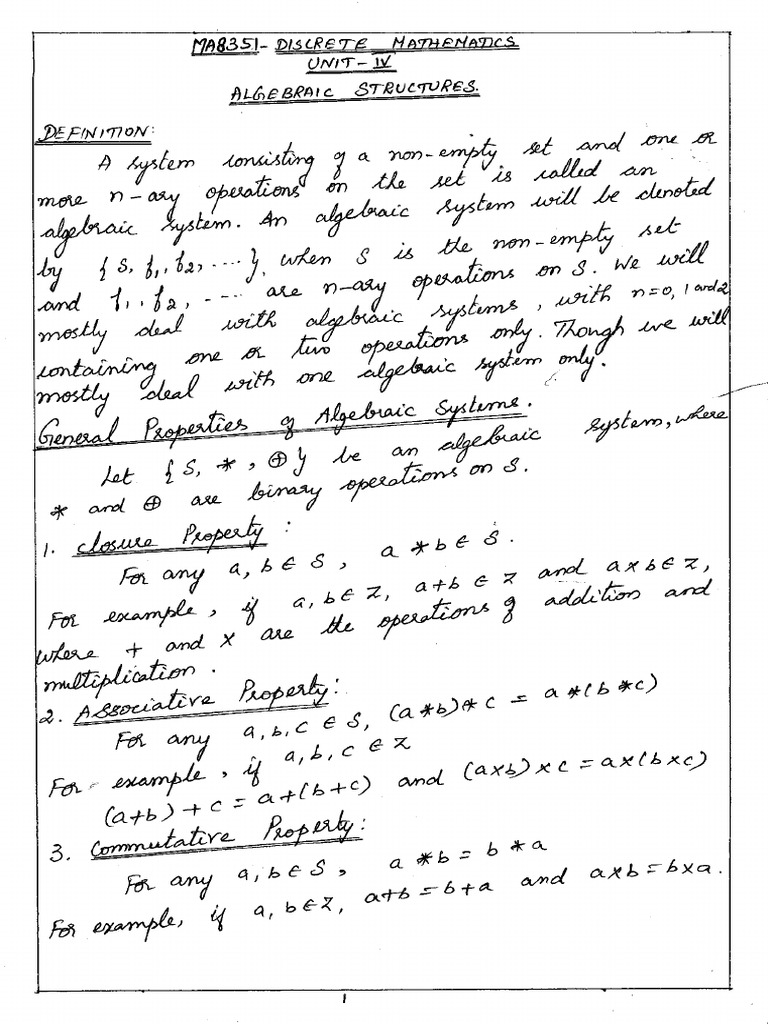 MA8351- DISCRETE MATHEMATICS
UNIT-IV
ALGEBRAIC STRUCTURES.
DEFINITION:
A system consisting of a non-empty set and one or
more n-ary operations on the set is called an
algebraic system. An algebraic system will be denoted
by {S, f₁, f₂, ....}, when S is the non-empty set
and f₁, f₂, .... are n-ary operations on S. We will
mostly deal with algebraic systems, with n=0, 1 and 2
containing one or two operations only. Though we will
mostly deal with one algebraic system only.
General Properties of Algebraic Systems.
Let {S, *, ⊕} be an algebraic system, where
* and ⊕ are binary operations on S.
1. Closure Property :
For any a, b ∈ S, a * b ∈ S.
For example, if a, b ∈ Z, a+b ∈ Z and a×b ∈ Z,
where + and × are the operations of addition and
multiplication.
2. Associative Property:
For any a, b, c ∈ S, (a*b)*c = a*(b*c)
For example, if a, b, c ∈ Z
(a+b)+c = a+(b+c) and (a×b)×c = a×(b×c)
3. Commutative Property:
For any a, b ∈ S, a*b = b*a
For example, if a, b ∈ Z, a+b = b+a and a×b = b×a.
1